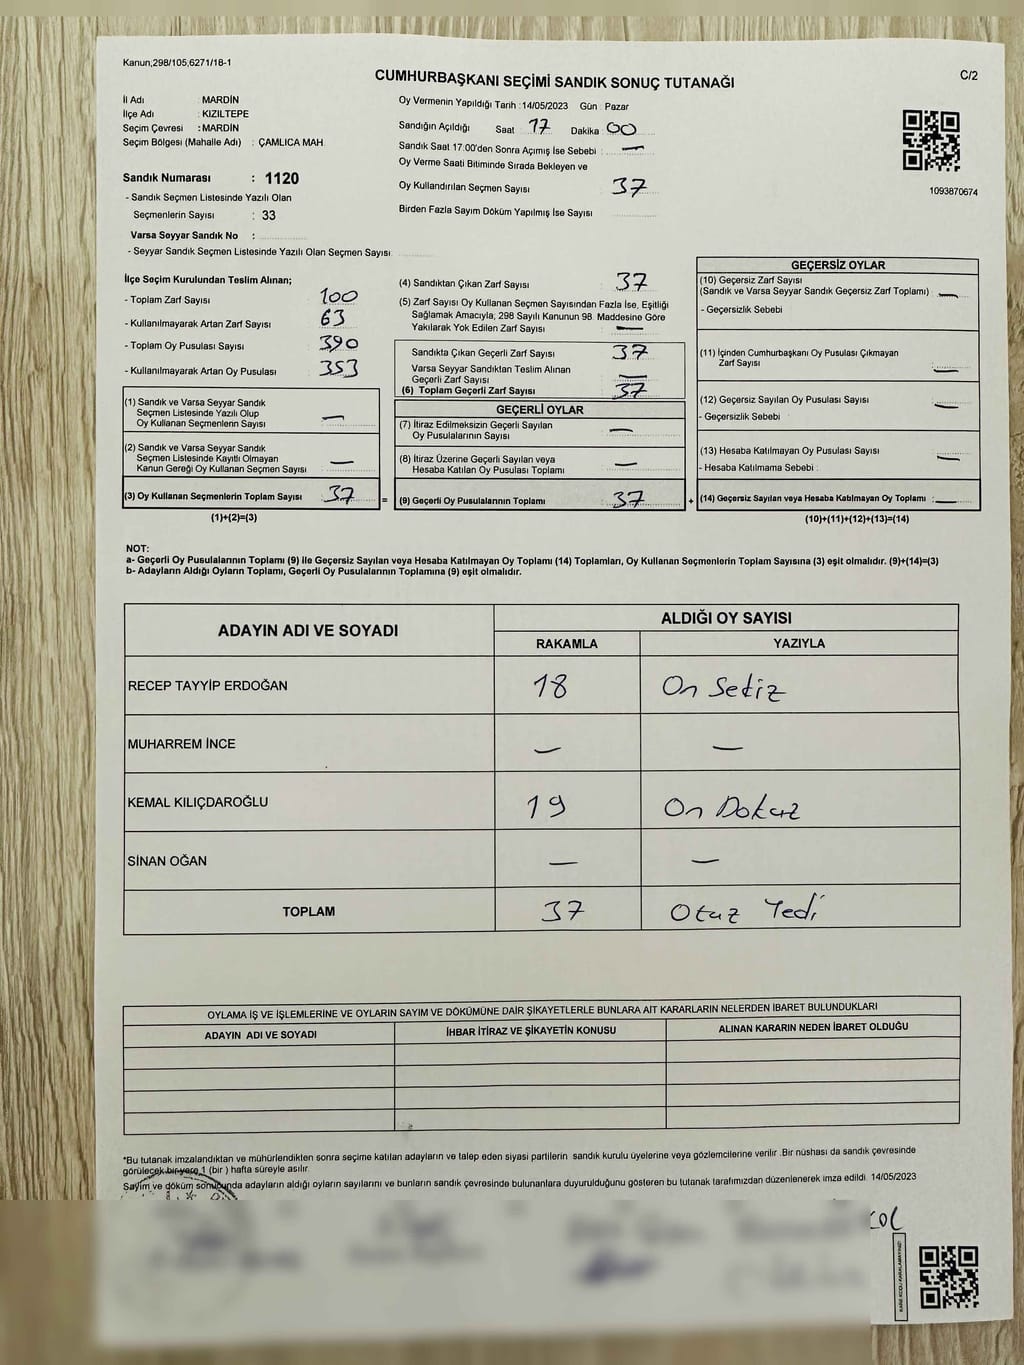 Kanun,298/105,6271/18-1
CUMHURBAŞKANI SEÇİMİ SANDIK SONUÇ TUTANAĞI
C/2
İl Adı : MARDİN
İlçe Adı : KIZILTEPE
Seçim Çevresi : MARDİN
Seçim Bölgesi (Mahalle Adı) : ÇAMLICA MAH.
Sandık Numarası : 1120
- Sandık Seçmen Listesinde Yazılı Olan
Seçmenlerin Sayısı : 33
Varsa Seyyar Sandık No :
- Seyyar Sandık Seçmen Listesinde Yazılı Olan Seçmen Sayısı:
Oy Vermenin Yapıldığı Tarih : 14/05/2023 Gün : Pazar
Sandığın Açıldığı Saat 17 Dakika 00
Sandık Saat 17:00'den Sonra Açımış İse Sebebi : —
Oy Verme Saati Bitiminde Sırada Bekleyen ve
Oy Kullandırılan Seçmen Sayısı 37
Birden Fazla Sayım Döküm Yapılmış İse Sayısı
1093870674
İlçe Seçim Kurulundan Teslim Alınan;
- Toplam Zarf Sayısı 100
- Kullanılmayarak Artan Zarf Sayısı 63
- Toplam Oy Pusulası Sayısı 390
- Kullanılmayarak Artan Oy Pusulası 353
(1) Sandık ve Varsa Seyyar Sandık
Seçmen Listesinde Yazılı Olup
Oy Kullanan Seçmenlerin Sayısı —
(2) Sandık ve Varsa Seyyar Sandık
Seçmen Listesinde Kayıtlı Olmayan
Kanun Gereği Oy Kullanan Seçmen Sayısı —
(3) Oy Kullanan Seçmenlerin Toplam Sayısı 37 =
(1)+(2)=(3)
(4) Sandıktan Çıkan Zarf Sayısı 37
(5) Zarf Sayısı Oy Kullanan Seçmen Sayısından Fazla İse, Eşitliği
Sağlamak Amacıyla; 298 Sayılı Kanunun 98. Maddesine Göre
Yakılarak Yok Edilen Zarf Sayısı —
Sandıkta Çıkan Geçerli Zarf Sayısı 37
Varsa Seyyar Sandıktan Teslim Alınan
Geçerli Zarf Sayısı —
(6) Toplam Geçerli Zarf Sayısı 37
GEÇERLİ OYLAR
(7) İtiraz Edilmeksizin Geçerli Sayılan
Oy Pusulalarının Sayısı —
(8) İtiraz Üzerine Geçerli Sayılan veya
Hesaba Katılan Oy Pusulası Toplamı —
(9) Geçerli Oy Pusulalarının Toplamı 37 +
GEÇERSİZ OYLAR
(10) Geçersiz Zarf Sayısı
(Sandık ve Varsa Seyyar Sandık Geçersiz Zarf Toplamı) : —
- Geçersizlik Sebebi
(11) İçinden Cumhurbaşkanı Oy Pusulası Çıkmayan
Zarf Sayısı —
(12) Geçersiz Sayılan Oy Pusulası Sayısı —
- Geçersizlik Sebebi
(13) Hesaba Katılmayan Oy Pusulası Sayısı —
- Hesaba Katılmama Sebebi :
(14) Geçersiz Sayılan veya Hesaba Katılmayan Oy Toplamı : —
(10)+(11)+(12)+(13)=(14)
NOT:
a- Geçerli Oy Pusulalarının Toplamı (9) ile Geçersiz Sayılan veya Hesaba Katılmayan Oy Toplamı (14) Toplamları, Oy Kullanan Seçmenlerin Toplam Sayısına (3) eşit olmalıdır. (9)+(14)=(3)
b- Adayların Aldığı Oyların Toplamı, Geçerli Oy Pusulalarının Toplamına (9) eşit olmalıdır.
ADAYIN ADI VE SOYADI
ALDIĞI OY SAYISI
RAKAMLA YAZIYLA
RECEP TAYYİP ERDOĞAN 18 On Sekiz
MUHARREM İNCE — —
KEMAL KILIÇDAROĞLU 19 On Dokuz
SİNAN OĞAN — —
TOPLAM 37 Otuz Yedi
OYLAMA İŞ VE İŞLEMLERİNE VE OYLARIN SAYIM VE DÖKÜMÜNE DAİR ŞİKAYETLERLE BUNLARA AİT KARARLARIN NELERDEN İBARET BULUNDUKLARI
ADAYIN ADI VE SOYADI İHBAR İTİRAZ VE ŞİKAYETİN KONUSU ALINAN KARARIN NEDEN İBARET OLDUĞU
*Bu tutanak imzalandıktan ve mühürlendikten sonra seçime katılan adayların ve talep eden siyasi partilerin sandık kurulu üyelerine veya gözlemcilerine verilir. Bir nüshası da sandık çevresinde
görülecek bir yere 1 (bir) hafta süreyle asılır.
Sayım ve döküm sonucunda adayların aldığı oyların sayılarını ve bunların sandık çevresinde bulunanlara duyurulduğunu gösteren bu tutanak tarafımızdan düzenlenerek imza edildi. 14/05/2023